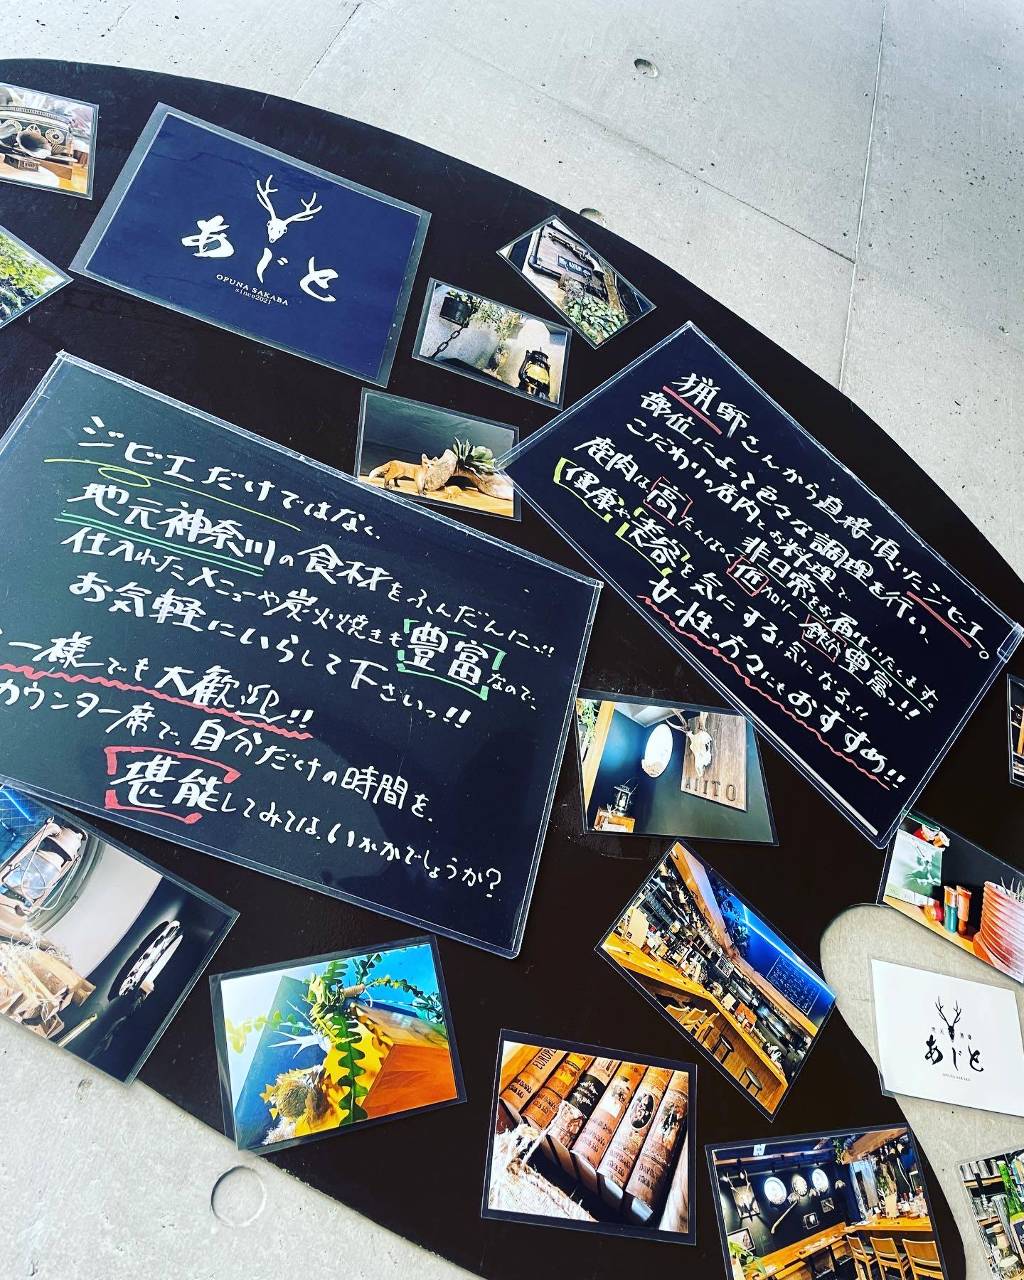 あじと
OPUNA SAKABA
since2021
猟師さんから直接頂いたジビエ。
部位によって色々な調理を行い、
こだわりの店内とお料理で
非日常をお届けいたします
鹿肉は高たんぱく低カロリー鉄分豊富っ!!
健康や美容を気にする!気になる!!
女性の方々にもおすすめ!!
ジビエだけではなく、
地元神奈川の食材をふんだんにっ!!
仕入れたメニューや炭火焼きも豊富なので、
お気軽にいらして下さいっ!!
一様でも大歓迎!!
カウンター席で、自分だけの時間を、
堪能してみては、いかがでしょうか?
AJITO
あじと
OPUNA SAKABA